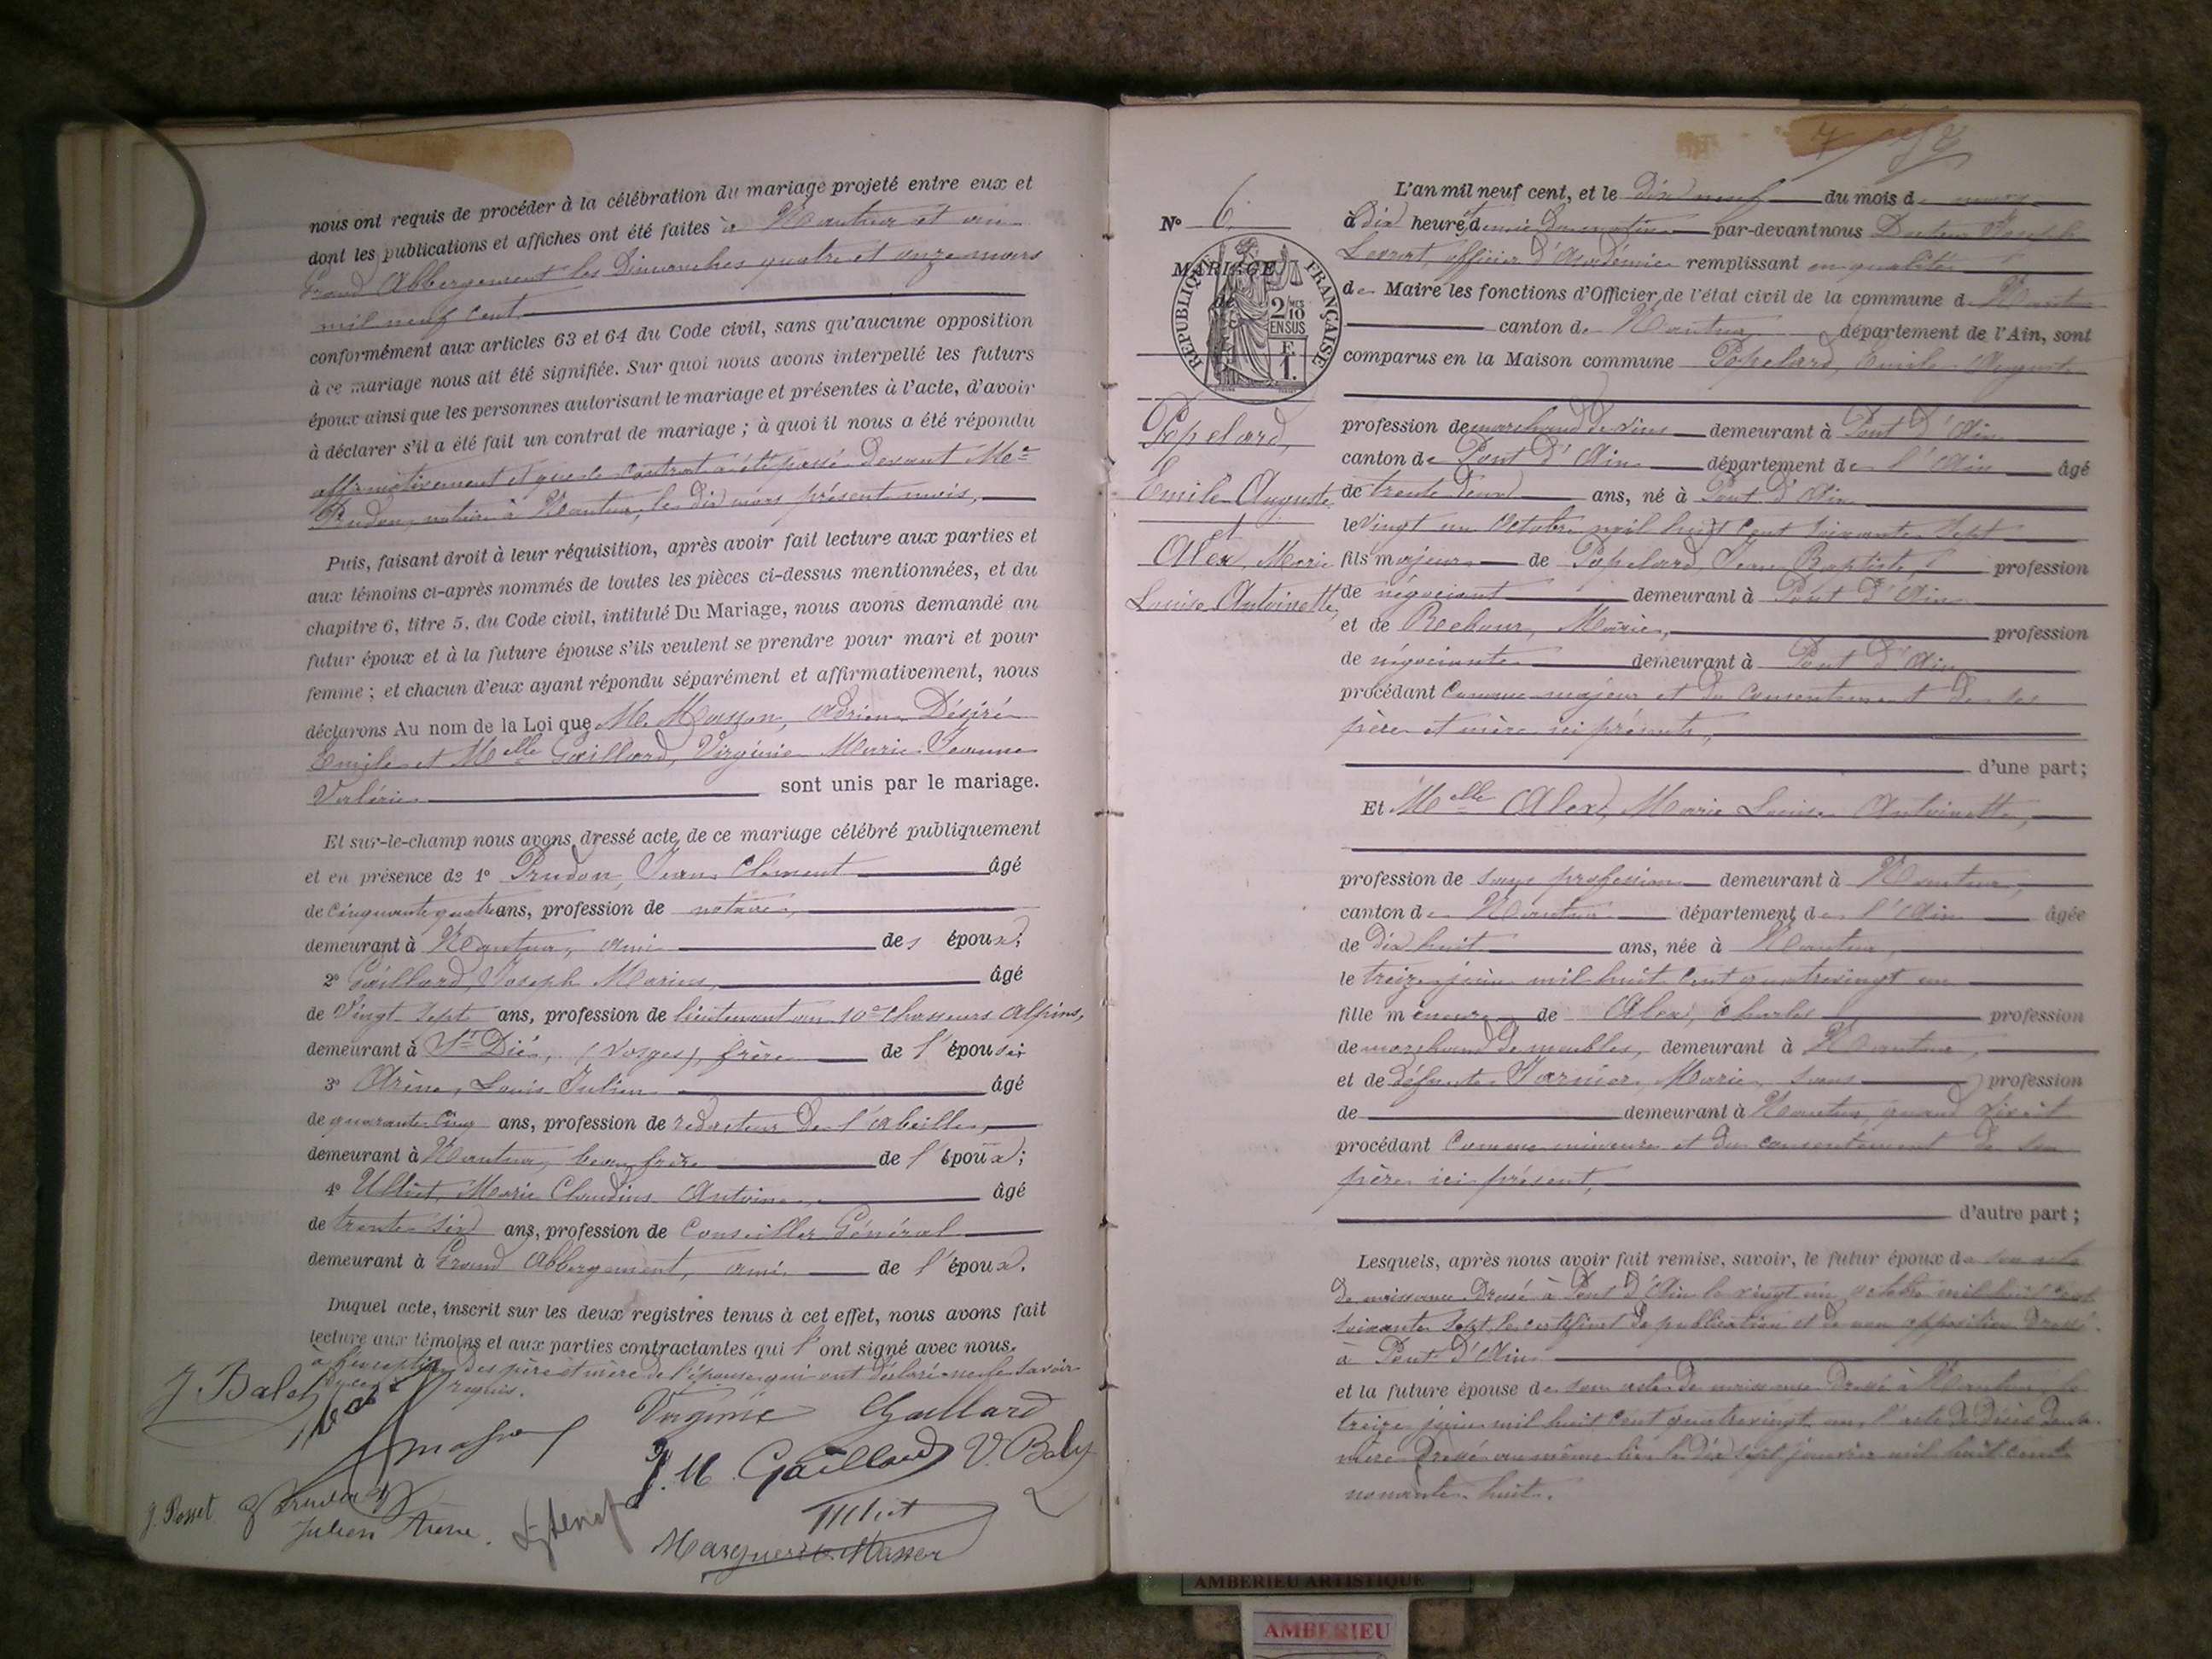 nous ont requis de procéder à la célébration du mariage projeté entre eux et
dont les publications et affiches ont été faites à Nantua et au
Grand Abbergement les Dimanches quatre et onze mars
mil neuf cent
conformément aux articles 63 et 64 du Code civil, sans qu'aucune opposition
à ce mariage nous ait été signifiée. Sur quoi nous avons interpellé les futurs
époux ainsi que les personnes autorisant le mariage et présentes à l'acte, d'avoir
à déclarer s'il a été fait un contrat de mariage ; à quoi il nous a été répondu
affirmativement et que le contrat a été passé devant Me
Prudon, notaire à Nantua, le dix mars présent mois,
Puis, faisant droit à leur réquisition, après avoir fait lecture aux parties et
aux témoins ci-après nommés de toutes les pièces ci-dessus mentionnées, et du
chapitre 6, titre 5, du Code civil, intitulé Du Mariage, nous avons demandé au
futur époux et à la future épouse s'ils veulent se prendre pour mari et pour
femme ; et chacun d'eux ayant répondu séparément et affirmativement, nous
déclarons Au nom de la Loi que M. Masson, Adrien Désiré
Emile et Melle Gaillard, Virginie Marie Jeanne
Valérie sont unis par le mariage.
Et sur-le-champ nous avons dressé acte de ce mariage célébré publiquement
et en présence de 1° Prudon, Jean Clément âgé
de cinquante quatre ans, profession de notaire,
demeurant à Nantua, ami des époux;
2° Gaillard, Joseph Marius, âgé
de Vingt sept ans, profession de lieutenant au 10e Chasseurs Alpins,
demeurant à St Dié, (Vosges), frère de l'épouse
3° Arène, Louis Julien âgé
de quarante cinq ans, profession de rédacteur de l'Abeille,
demeurant à Nantua, beau frère de l'époux;
4° Ulliet, Marie Claudius Antoine, âgé
de trente six ans, profession de Conseiller Général
demeurant à Grand Abbergement, ami de l'époux.
Duquel acte, inscrit sur les deux registres tenus à cet effet, nous avons fait
lecture aux témoins et aux parties contractantes qui l'ont signé avec nous.
à l'exception des père et mère de l'épouse qui ont déclaré ne le savoir
de ce requis.
J Balet
Virginie Gaillard
A masson
J. M. Gaillard V. Baly
J. Posset Prudon
Julien Arène.
Ulliet
Marguerite Masson
N° 6
MARIAGE
de
RÉPUBLIQUE FRANÇAISE
2 MES
10
EN SUS
F.
1.
Popelard,
Emile Auguste
et
Alex, Marie
Louise Antoinette,
L'an mil neuf cent, et le dix neuf du mois de mars
à dix heures et demie du matin par-devant nous Docteur Joseph
officier d'Académie remplissant en qualité
de Maire les fonctions d'Officier de l'état civil de la commune de Nantua
canton de Nantua département de l'Ain, sont
comparus en la Maison commune Popelard, Emile Auguste
profession de marchand de vins demeurant à Pont d'Ain
canton de Pont d'Ain département de l'Ain âgé
de trente deux ans, né à Pont d'Ain
le vingt un Octobre mil huit cent soixante sept
fils majeur de Popelard, Jean Baptiste, profession
de négociant demeurant à Pont d'Ain
et de Rebour, Marie, profession
de négociante demeurant à Pont d'Ain
procédant comme majeur et du consentement de ses
père et mère ici présents,
d'une part ;
Et Melle Alex, Marie Louise Antoinette,
profession de sans profession demeurant à Nantua,
canton de Nantua département de l'Ain âgée
de dix huit ans, née à Nantua,
le treize juin mil huit cent quatrevingt un
fille mineure de Alex, Charles profession
de marchand de meubles, demeurant à Nantua,
et de défunte Jarnier, Marie sans profession
de demeurant à Nantua, quand vivait
procédant comme mineure et du consentement de son
père ici présent,
d'autre part ;
Lesquels, après nous avoir fait remise, savoir, le futur époux de son acte
de naissance dressé à Pont d'Ain le vingt un octobre mil huit cent
soixante sept, le certificat de publication et de non opposition dressé
à Pont d'Ain
et la future épouse de son acte de naissance dressé à Nantua le
treize juin mil huit cent quatrevingt un, l'acte de décès de sa
mère dressé au même lieu le dix sept janvier mil huit cent
nonante huit.
AMBERIEU ARTISTIQUE
AMBERIEU